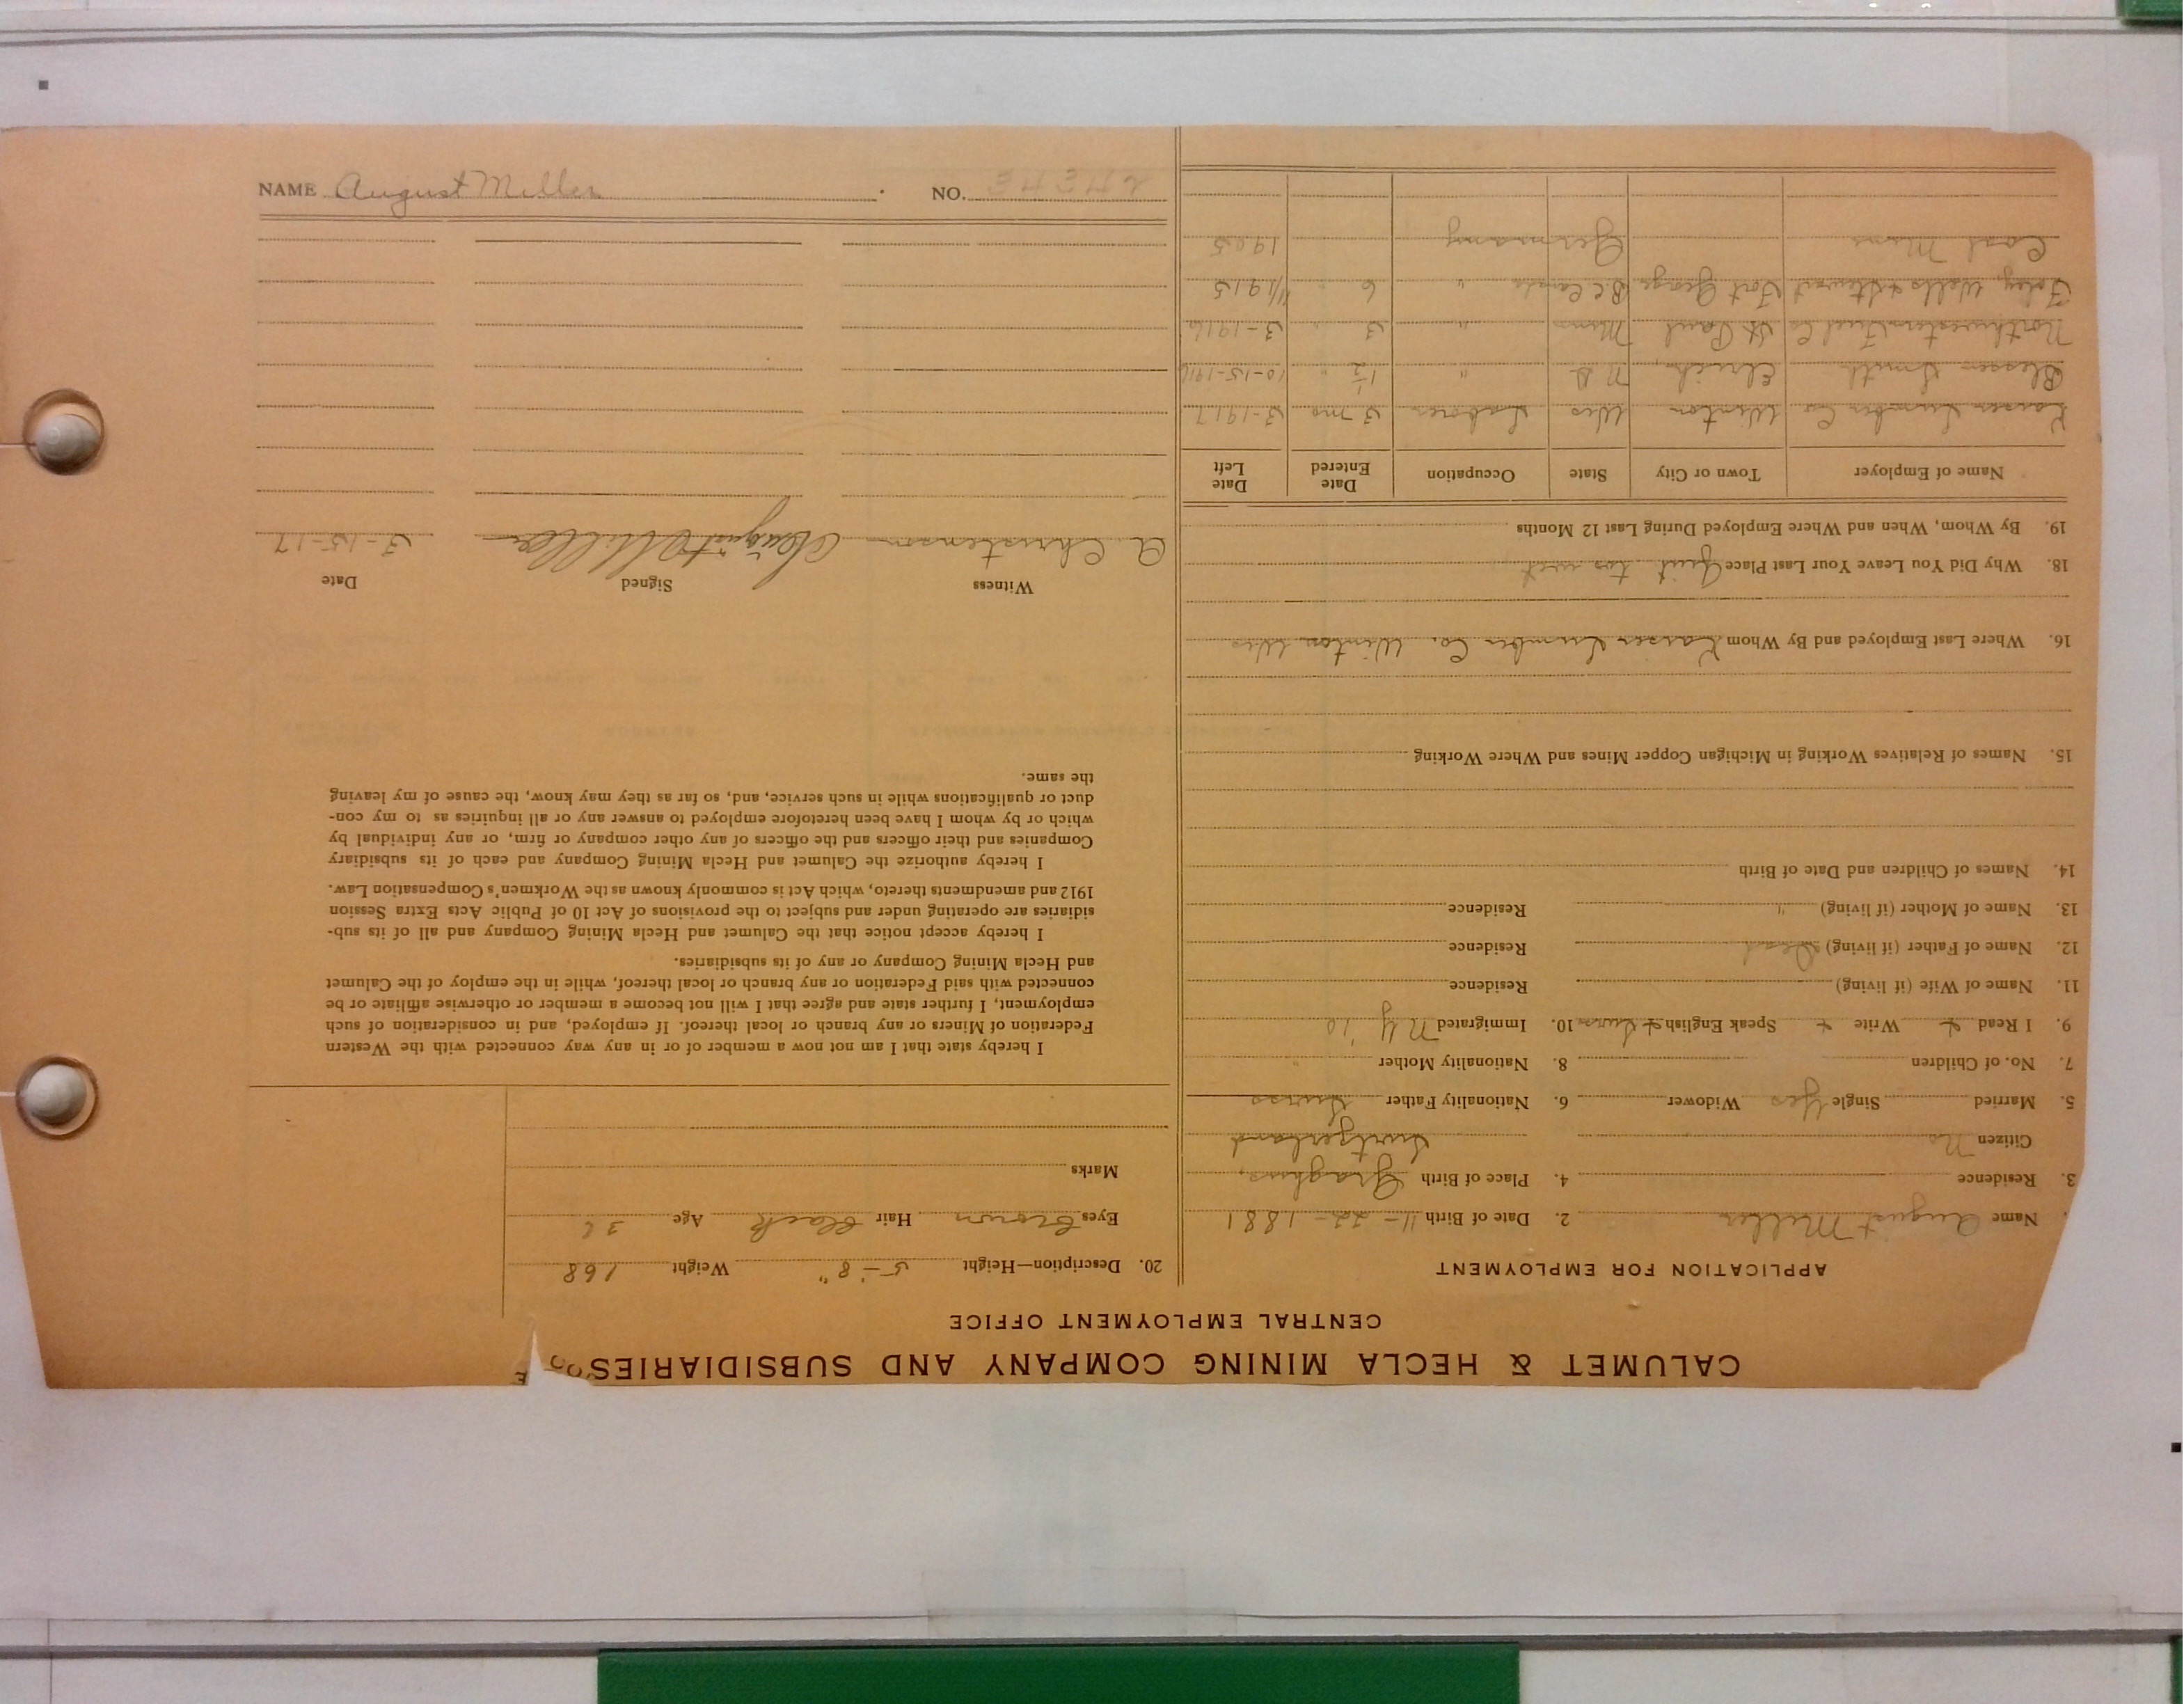 CALUMET & HECLA MINING COMPANY AND SUBSIDIARIES
CENTRAL EMPLOYMENT OFFICE
APPLICATION FOR EMPLOYMENT
Name August Miller 2. Date of Birth 11-22-1881
3. Residence 4. Place of Birth
Citizen No Switzerland
5. Married Single Yes Widower 6. Nationality Father Swiss
7. No. of Children 8. Nationality Mother "
9. I Read + Write + Speak English + Swiss 10. Immigrated N Y '10
11. Name of Wife (if living) Residence
12. Name of Father (if living) Dead Residence
13. Name of Mother (if living) " Residence
14. Names of Children and Date of Birth
15. Names of Relatives Working in Michigan Copper Mines and Where Working
16. Where Last Employed and By Whom Kaiser Lumber Co. Winton Wis
18. Why Did You Leave Your Last Place Quit too wet
19. By Whom, When and Where Employed During Last 12 Months
Name of Employer Town or City State Occupation Date Entered Date Left
Kaiser Lumber Co Winton Wis Laborer 3 mo 3-1917
Smith N.D. " 1½ " 10-15-1916
Northwestern Fuel Co St Paul Minn " 3 " 3-1916
Foley, Wells & Stewart Fort George B.C. Canada " 6 " 11/1915
Coal Mines Germany 1905
20. Description—Height 5-'8" Weight 168
Eyes Brown Hair Black Age 36
Marks
I hereby state that I am not now a member of or in any way connected with the Western
Federation of Miners or any branch or local thereof. If employed, and in consideration of such
employment, I further state and agree that I will not become a member or otherwise affiliate or be
connected with said Federation or any branch or local thereof, while in the employ of the Calumet
and Hecla Mining Company or any of its subsidiaries.
I hereby accept notice that the Calumet and Hecla Mining Company and all of its sub-
sidiaries are operating under and subject to the provisions of Act 10 of Public Acts Extra Session
1912 and amendments thereto, which Act is commonly known as the Workmen's Compensation Law.
I hereby authorize the Calumet and Hecla Mining Company and each of its subsidiary
Companies and their officers and the officers of any other company or firm, or any individual by
which or by whom I have been heretofore employed to answer any or all inquiries as to my con-
duct or qualifications while in such service, and, so far as they may know, the cause of my leaving
the same.
Witness Signed Date
A. Christenson August Miller 3-15-17
NAME August Miller NO.